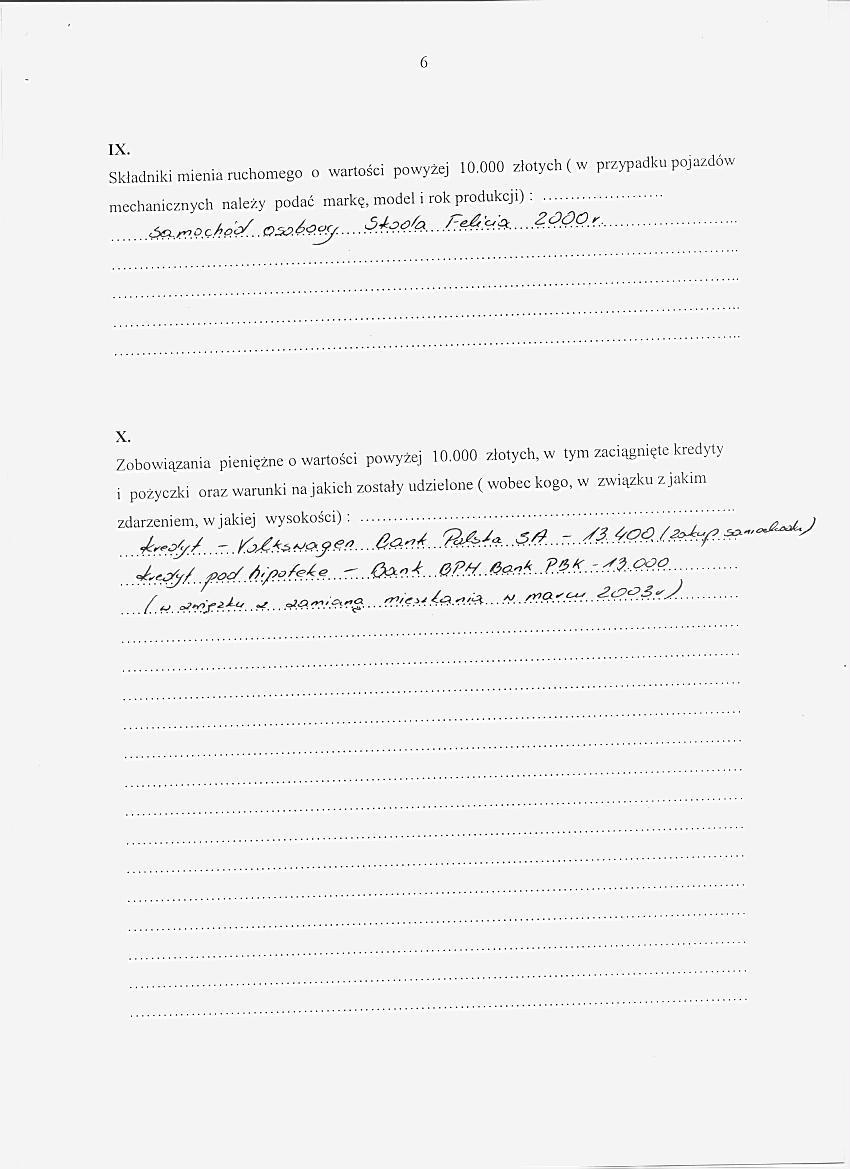 6
IX.
Składniki mienia ruchomego o wartości powyżej 10.000 złotych ( w przypadku pojazdów
mechanicznych należy podać markę, model i rok produkcji) : ......................
samochód osobowy Skoda Felicia 2000 r.
X.
Zobowiązania pieniężne o wartości powyżej 10.000 złotych, w tym zaciągnięte kredyty
i pożyczki oraz warunki na jakich zostały udzielone ( wobec kogo, w związku z jakim
zdarzeniem, w jakiej wysokości) : ......................
kredyt - Volkswagen Bank Polska SA - 13.400 (zakup samochodu)
kredyt pod hipotekę - Bank BPH Bank PBK - 13.000
(w związku z zamianą mieszkania w marcu 2003 r)